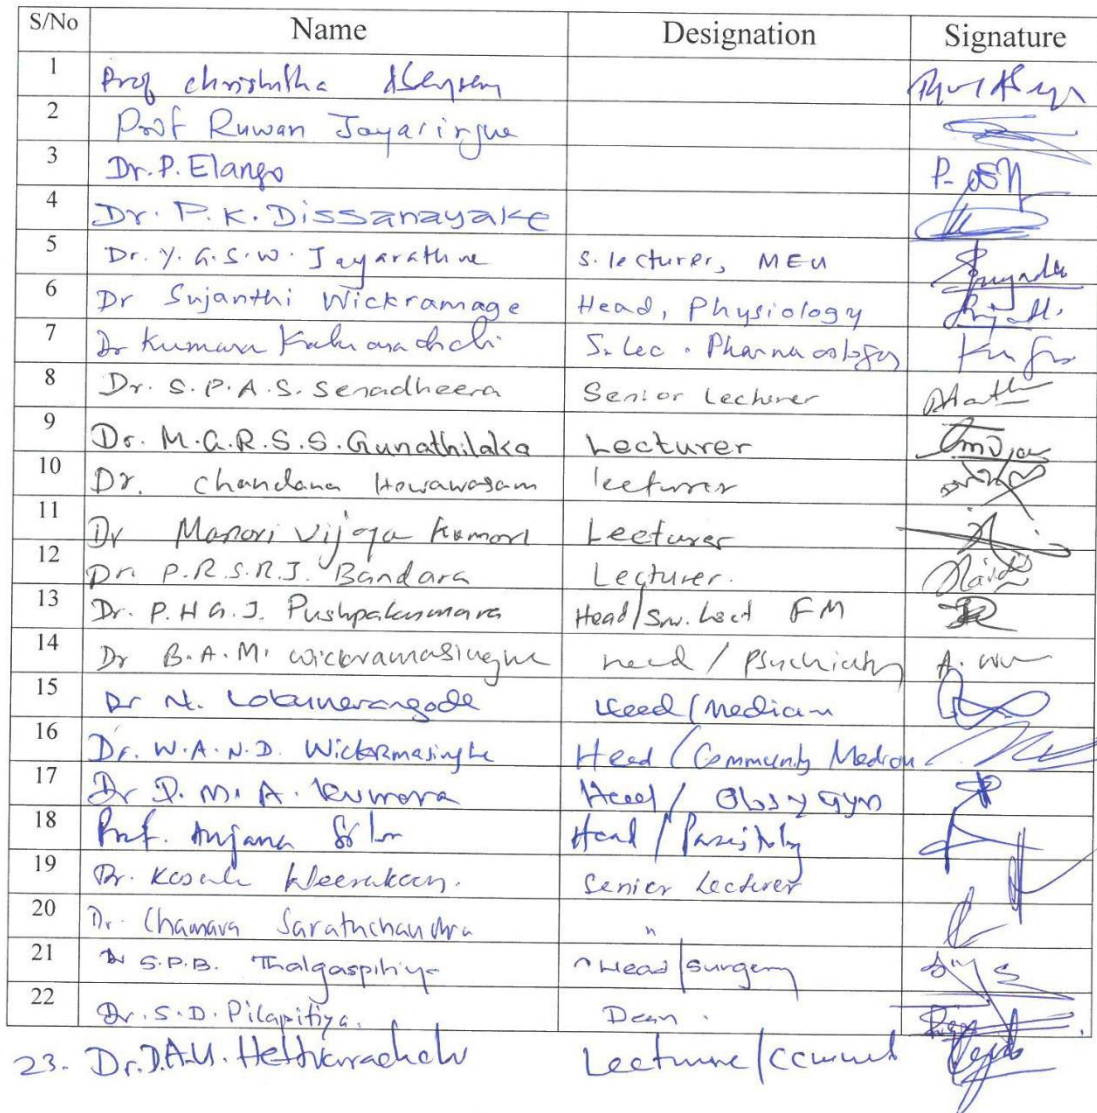 S/No Name Designation Signature
1 Prof
2 Prof Ruwan
3 Dr. P. Elango
4 Dr. P. K. Dissanayake
5 Dr. Y. G. S. W. Jayarathne S. lecturer, MEU
6 Dr Sujanthi Wickramage Head, Physiology
7 Dr Kumara S. Lec. Pharmacology
8 Dr. S. P. A. S. Senadheera Senior Lecturer
9 Dr. M. G. R. S. S. Gunathilaka Lecturer
10 Dr. Chandana lecturer
11 Dr Manori Vijaya Kumari Lecturer
12 Dr. P. R. S. R. J. Bandara Lecturer.
13 Dr. P. H. G. J. Pushpakumara Head/Snr. Lect FM
14 Dr B. A. M. Wickramasinghe Head / Psychiatry
15 Dr N. Head / Medicine
16 Dr. W. A. N. D. Wickramasinghe Head / Community Medicine
17 Dr D. M. A. Kumara Head / Obs & Gyn
18 Prof. Anjana Head / Parasitology
19 Dr. Kosala Weerakoon. Senior Lecturer
20 Dr. Chamara Sarathchandra "
21 Dr S. P. B. Thalgaspitiya Head/Surgery
22 Dr. S. D. Pilapitiya. Dean.
23. Dr. D. A. U. Hettiarachchi Lecturer/